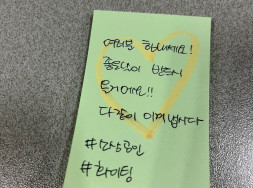 여러분 힘내세요!
좋은날이 반드시
올거에요!!
다같이 이겨냅시다
#화이팅